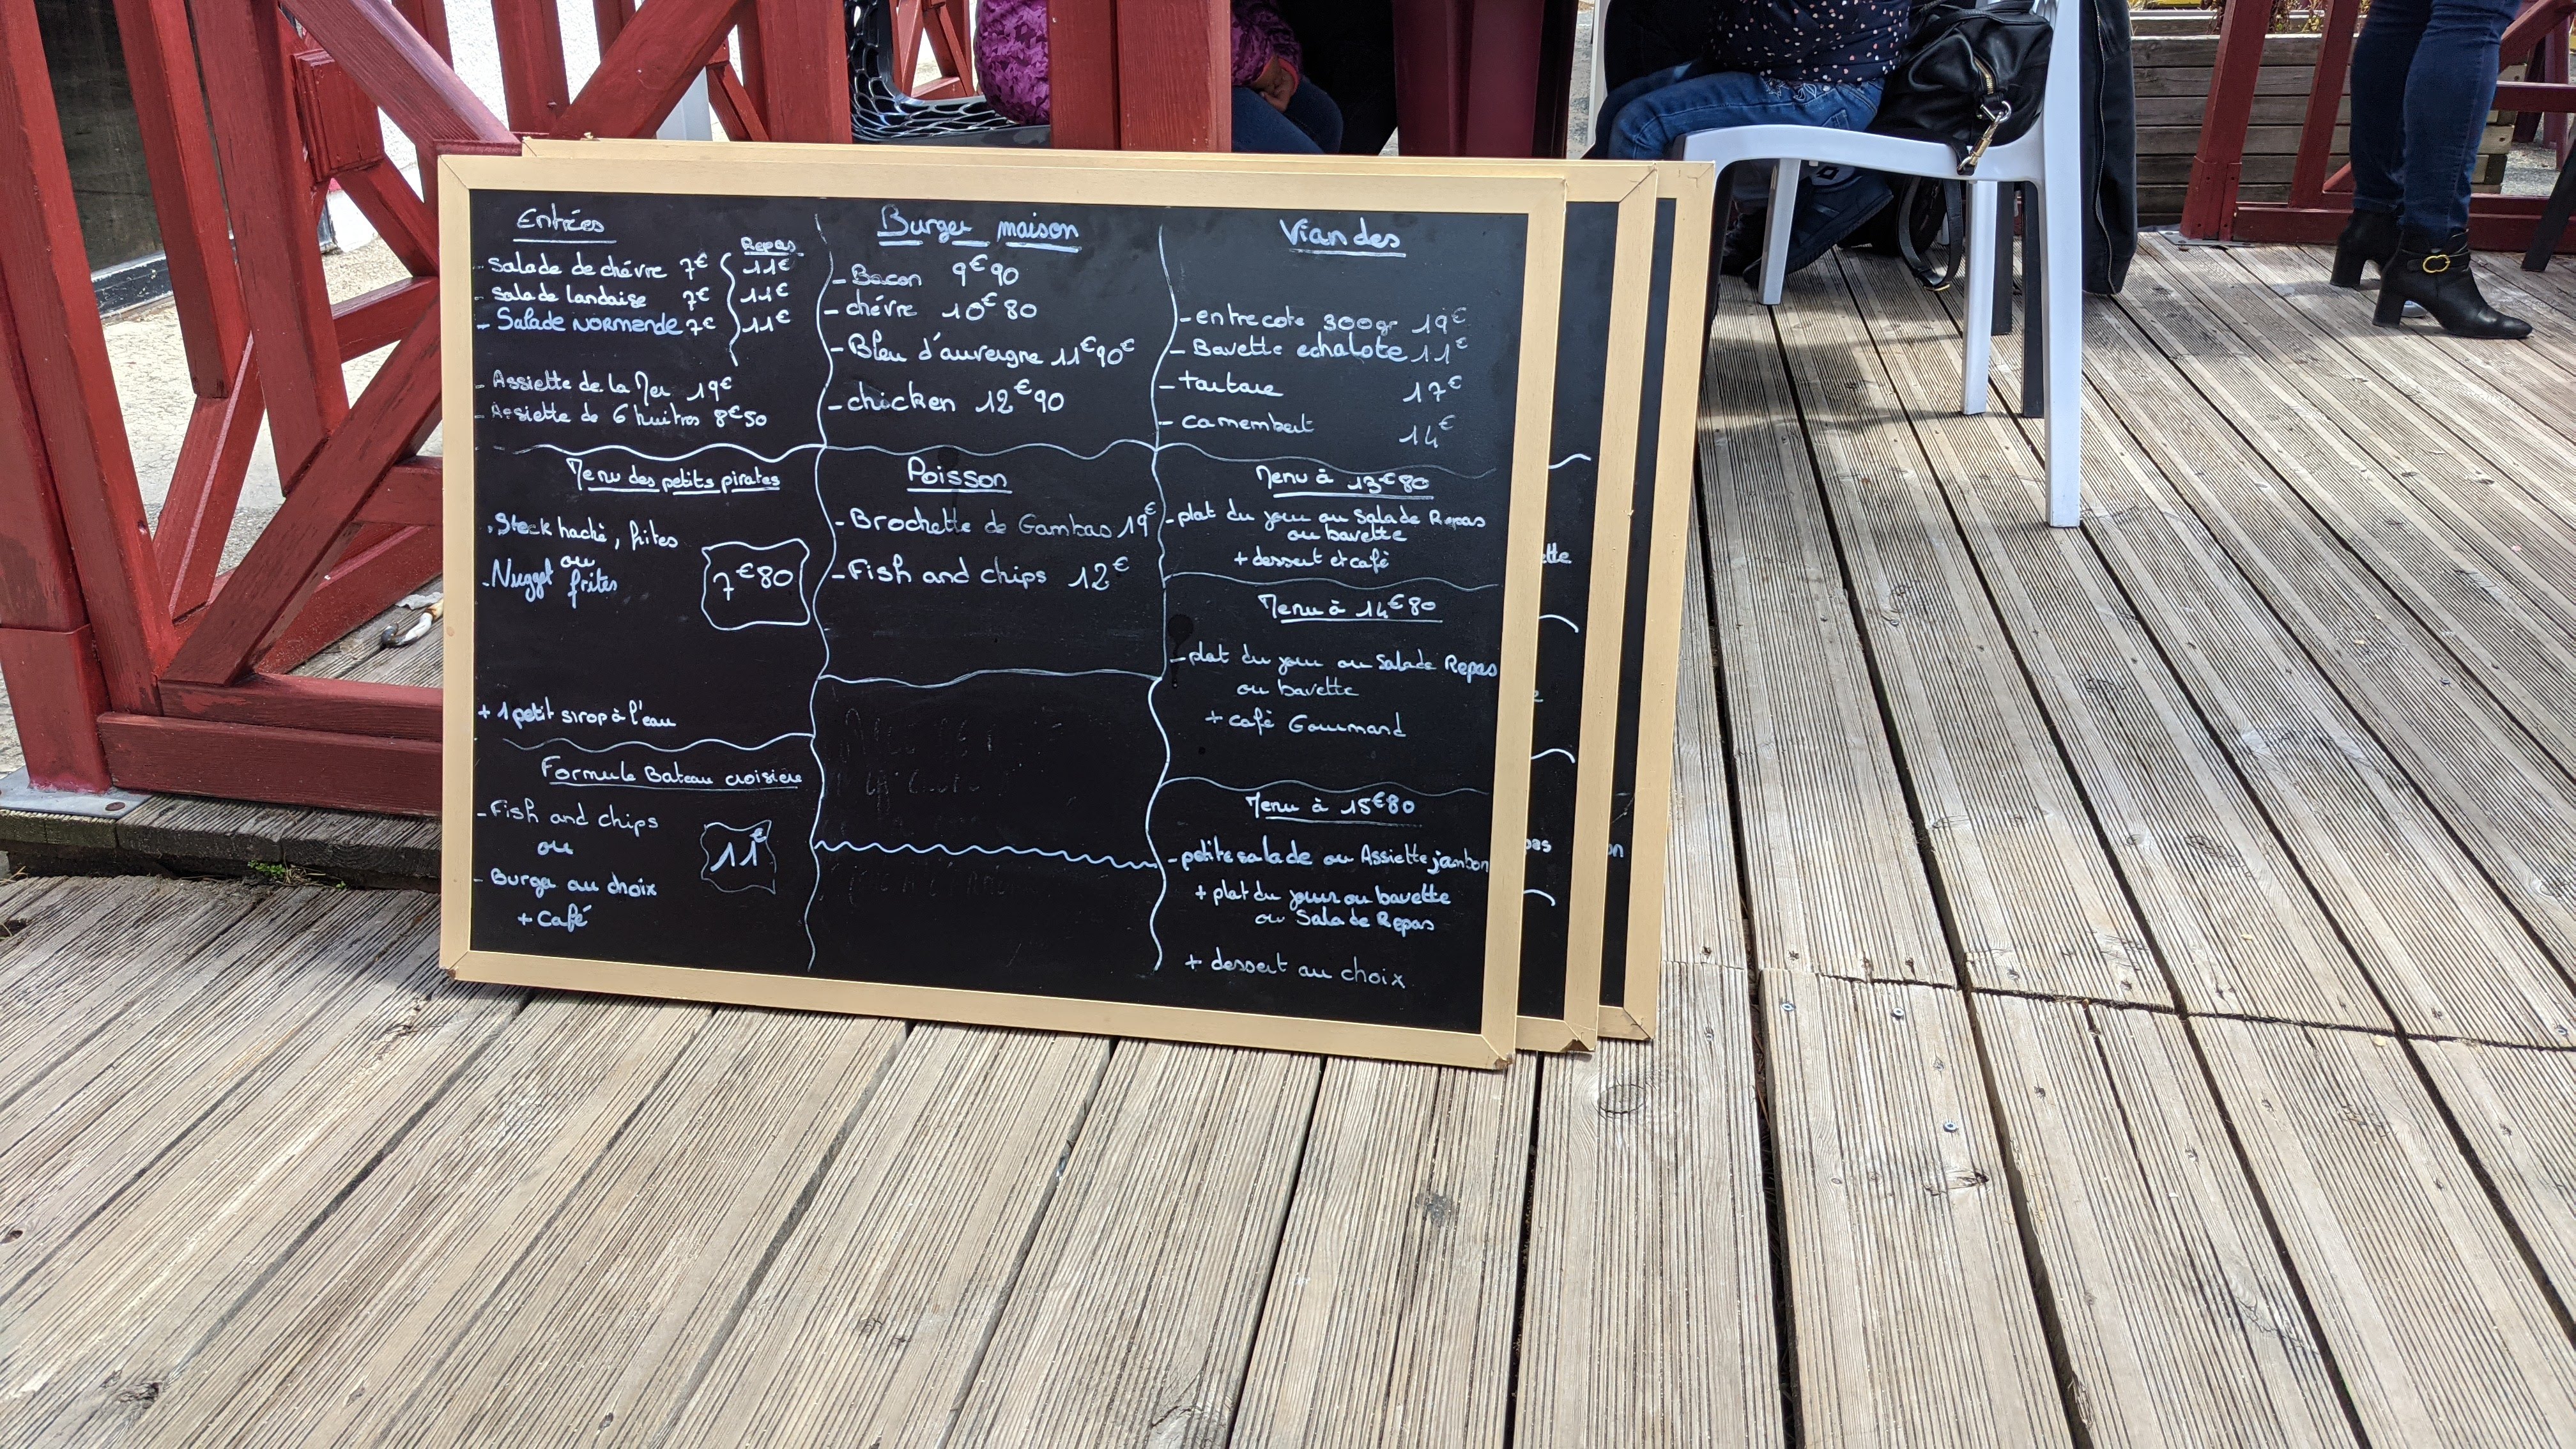 Entrées
Repas
- Salade de chévre 7€ 11€
- Salade landaise 7€ 11€
- Salade NORMANDE 7€ 11€
- Assiette de la Mer 19€
- Assiette de 6 huitres 8€50
Menu des petits pirates
- Steck haché, frites
ou
- Nugget frites
7€80
+ 1 petit sirop à l'eau
Formule Bateau croisière
- Fish and chips
ou
- Burger au choix
+ Café
11€
Burger maison
- Bacon 9€90
- chévre 10€80
- Bleu d'auvergne 11€90€
- chicken 12€90
Poisson
- Brochette de Gambas 19€
- Fish and chips 12€
Viandes
- entrecote 300gr 19€
- Bavette echalote 11€
- tartare 17€
- camembert 14€
Menu à 13€80
- plat du jour ou Salade Repas
ou bavette
+ dessert et café
Menu à 14€80
- plat du jour ou Salade Repas
ou bavette
+ café Gourmand
Menu à 15€80
- petite salade ou Assiette jambon
+ plat du jour ou bavette
ou Salade Repas
+ dessert au choix